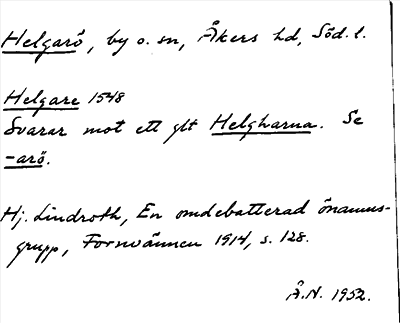 Helgarö, by o. sn, Åkers hd, Söd. l.
Helgare 1548
Svarar mot ett glt Helgharna. Se
-arö.
Hj. Lindroth, En omdebatterad önamns-
grupp, Fornvännen 1914, s. 128.
Å.N. 1952.